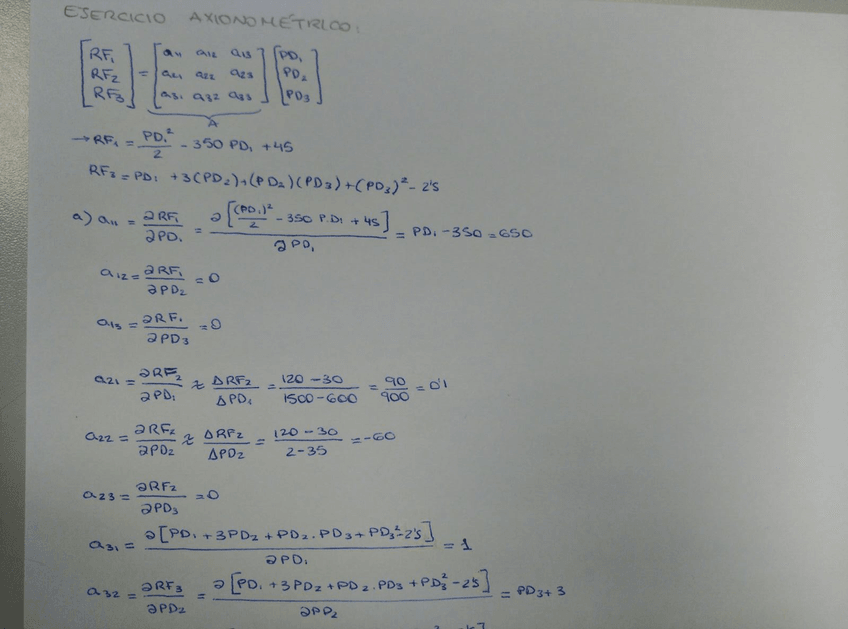 EJERCICIO AXIONOMÉTRICO:
[RF₁ RF₂ RF₃] = [a₁₁ a₁₂ a₁₃ a₂₁ a₂₂ a₂₃ a₃₁ a₃₂ a₃₃] [PD₁ PD₂ PD₃]
A
→RF₁ = PD₁²/2 - 350 PD₁ + 45
RF₃ = PD₁ + 3(PD₂) + (PD₂)(PD₃) + (PD₃)² - 2'5
a) a₁₁ = ∂RF₁/∂PD₁ = ∂[(PD₁)²/2 - 350 P.D₁ + 45]/∂PD₁ = PD₁ - 350 = 650
a₁₂ = ∂RF₁/∂PD₂ = 0
a₁₃ = ∂RF₁/∂PD₃ = 0
a₂₁ = ∂RF₂/∂PD₁ ≈ ΔRF₂/ΔPD₁ = 120 - 30/1500 - 600 = 90/900 = 0'1
a₂₂ = ∂RF₂/∂PD₂ ≈ ΔRF₂/ΔPD₂ = 120 - 30/2 - 35 = -60
a₂₃ = ∂RF₂/∂PD₃ = 0
a₃₁ = ∂[PD₁ + 3PD₂ + PD₂.PD₃ + PD₃² - 2'5]/∂PD₁ = 1
a₃₂ = ∂RF₃/∂PD₂ = ∂[PD₁ + 3PD₂ + PD₂.PD₃ + PD₃² - 2'5]/∂PD₂ = PD₃ + 3